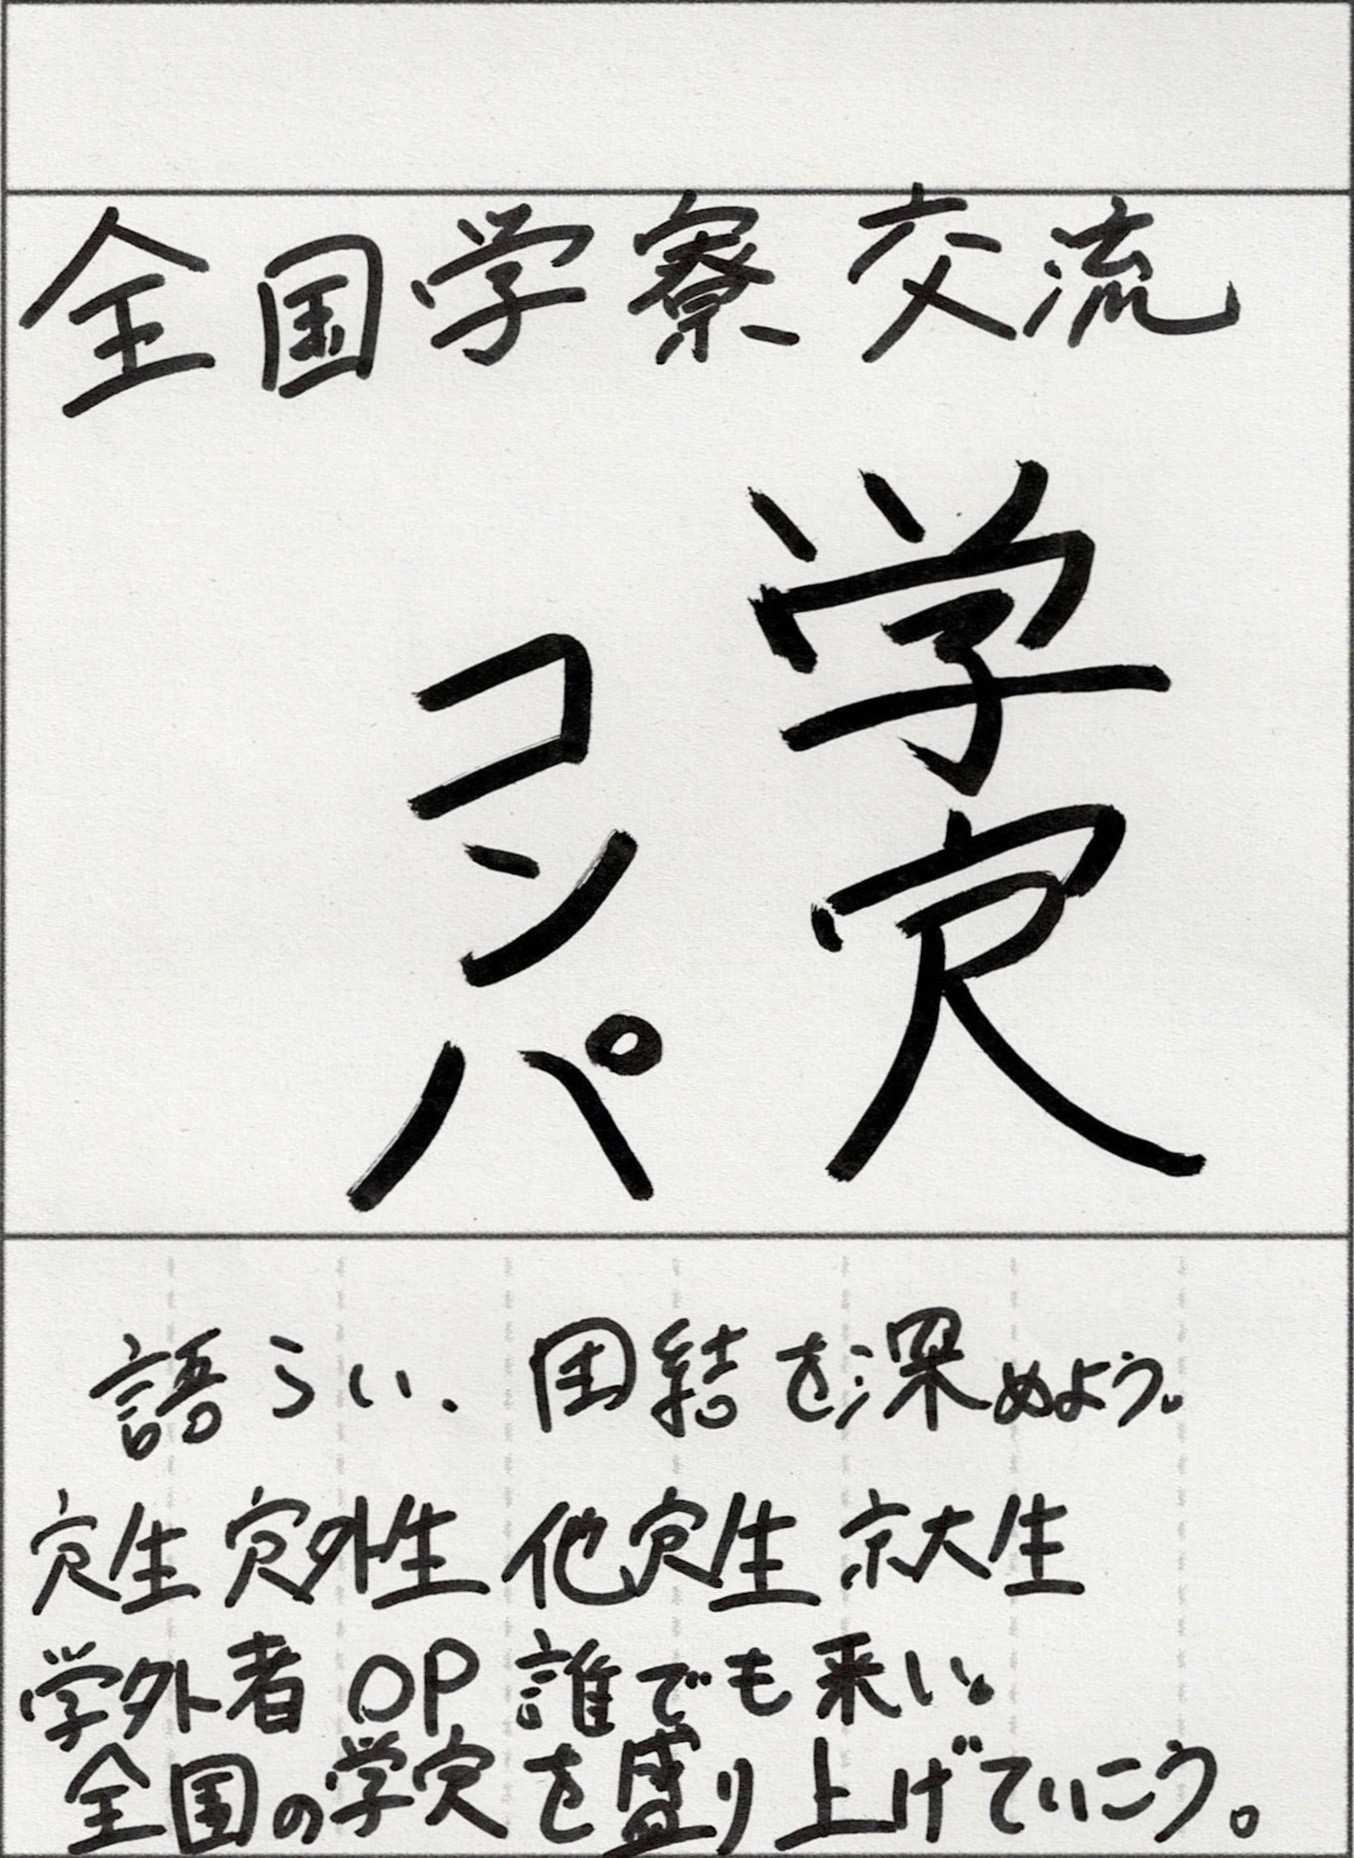 全国学寮交流
学寮
コンパ
語らい、団結を深めよう。
寮生 寮外生 他寮生 京大生
学外者 OP 誰でも来い。
全国の学寮を盛り上げていこう。